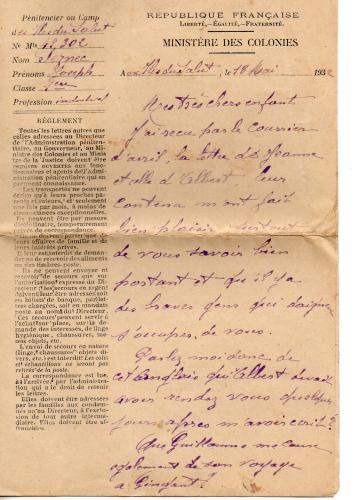 Pénitencier ou Camp
des Iles du Salut
N° Mle 49,302
Nom Seznec
Prénoms Joseph
Classe 1ère
Profession industriel
RÈGLEMENT
Toutes les lettres autres que
celles adressées au Directeur
de l'Administration péniten-
aire, au Gouverneur, au Mi-
nistre des Colonies et au Minis-
tre de la Justice doivent être
remises ouvertes aux fonc-
tionnaires et agents de l'Admi-
nistration pénitentiaire qui en
prennent connaissance.
Les transportés ne peuvent
écrire qu'à leurs proches pa-
rents et tuteurs, et seulement
une fois par mois, à moins de
circonstances exceptionnelles.
Ils peuvent être par mesure
disciplinaire, temporairement
privés de correspondance.
Ils ne doivent parler que de
leurs affaires de famille et de
leurs intérêts privés.
Il leur est interdit de deman-
der ou de recevoir des aliments
ou des timbres-poste.
Ils ne peuvent envoyer et
recevoir de secours que sur
l'autorisation expresse du Di-
recteur; les secours en argent
doivent leur être adressés soit
en billets de banque, soit par
lettres chargées, soit en mandats
poste au nom du Directeur.
Ces secours peuvent servir à
l'achat sur place, sur la de-
mande des intéressés, de linge
hygiénique, chaussures, me-
nus objets, etc.
L'envoi de secours en nature
(linge, chaussures, objets
divers, etc.) est interdit. Les colis
et échantillons ne seront pas
retirés de la poste.
La correspondance est lue
à l'arrivée, par l'administration
qui a le droit de retenir
les lettres.
Elles doivent être adressées
par les familles aux condam-
nés ou au Directeur, à l'exclu-
sion de tout autre intermé-
diaire. Elles doivent être af-
franchies.
RÉPUBLIQUE FRANÇAISE
LIBERTÉ,—ÉGALITÉ,—FRATERNITÉ.
MINISTÈRE DES COLONIES
Aux Iles du Salut, le 18 Mai 193
Mes très chers enfant
J'ai reçu par le courrier
d'avril, la lettre de Jeanne
et celle d'Albert leur
contenu m'ont fait
bien plaisir surtout
de vous savoir bien
portant et qu'il y a
des braves gens qui daigne
s'occuper de vous.
Parlez moi donc de
cet anglais qu'Albert devait
avoir rendez vous quelques
jours apres m'avoir ecrit?
Que Guillaume me cause
egalement de son voyage
a